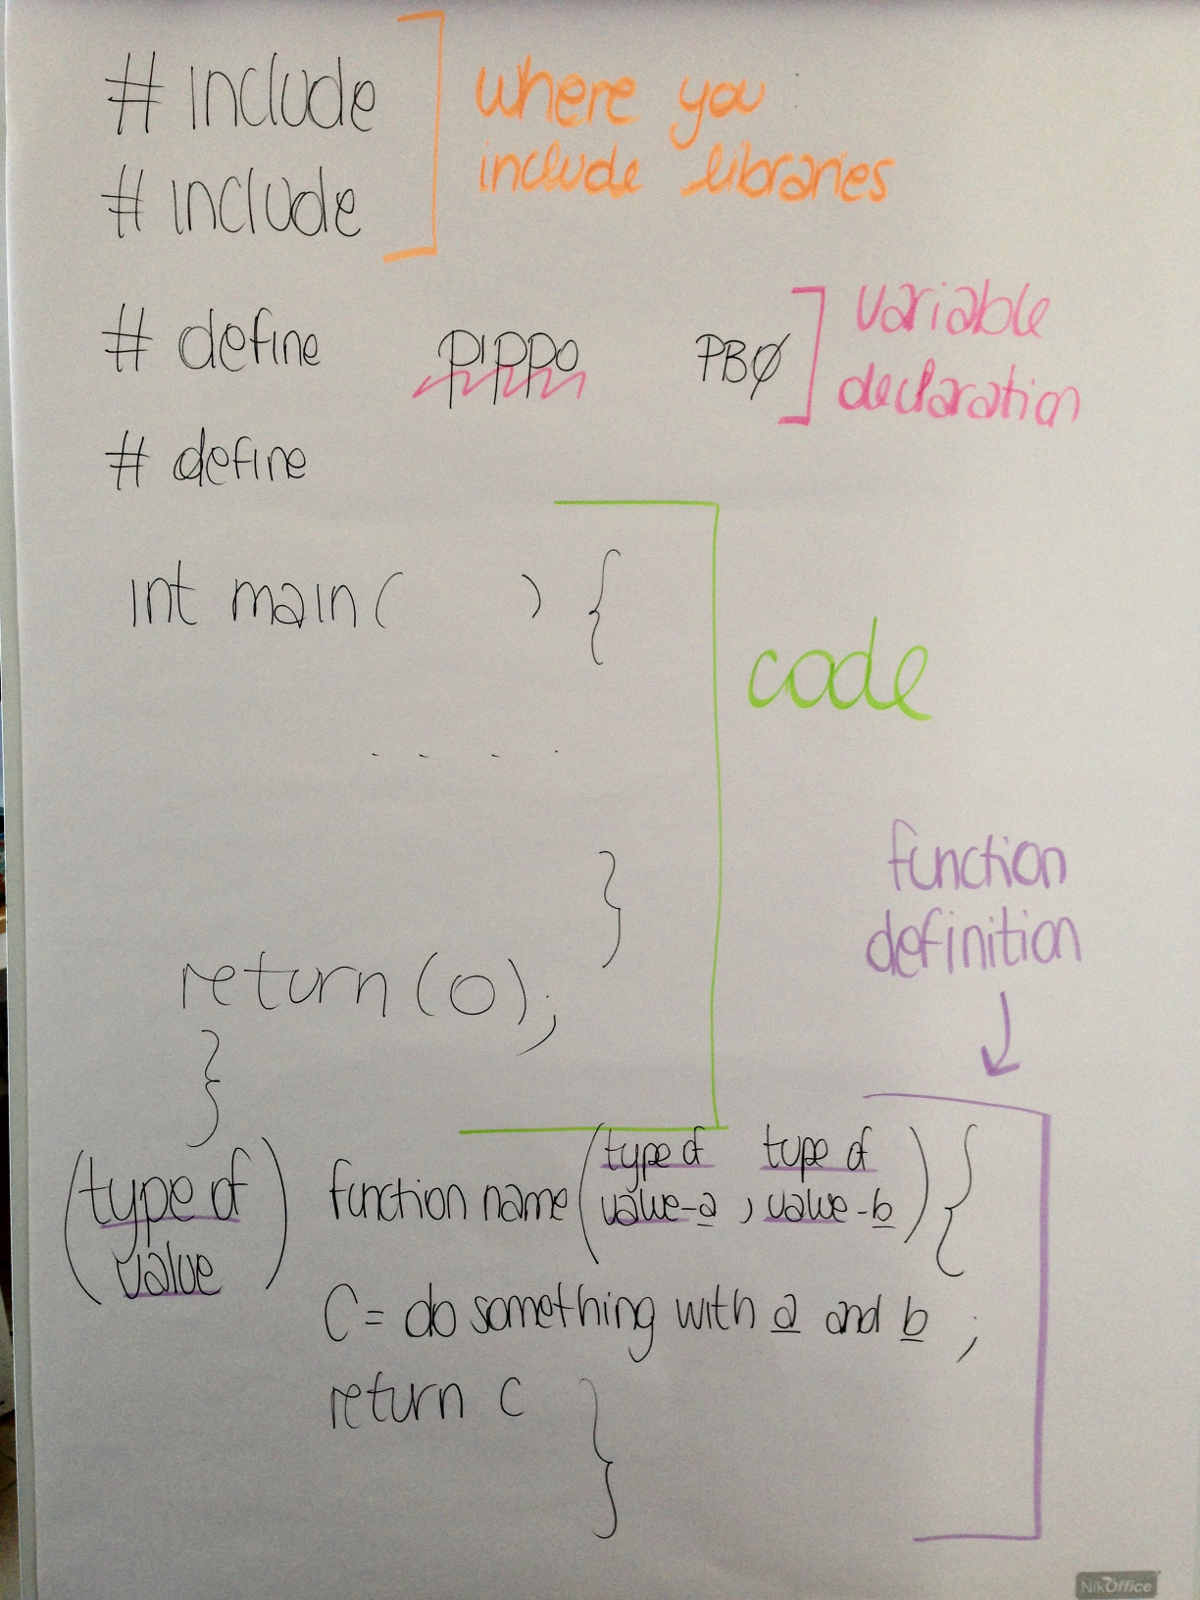 # include
# include
where you
include libraries
# define PIPPO PBØ
variable
declaration
# define
int main ( ) {
. . . .
code
}
return (0);
}
function
definition
(type of value) function name (type of value-a, type of value-b) {
C = do something with a and b ;
return C }
NikOffice